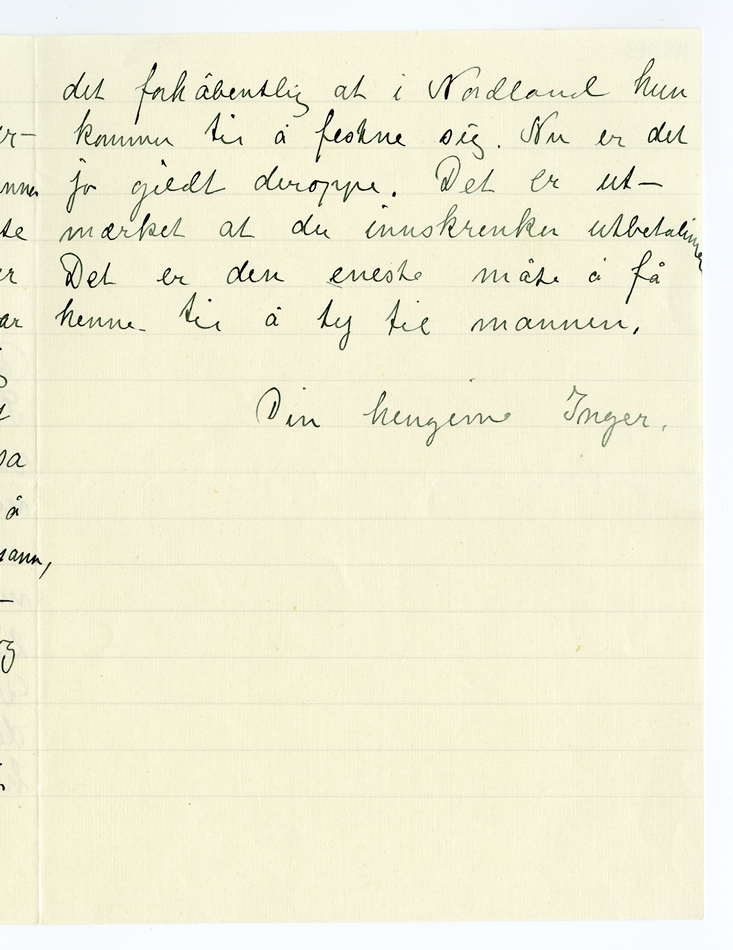 det forhåbentlig at i Nordland hun
kommer til å festne sig. Nu er det
jo gildt deroppe. Det er ut-
mærket at du innskrenker utbetalinger
Det er den eneste måte å få
henne til å ty til mannen.
Din hengivne Inger.